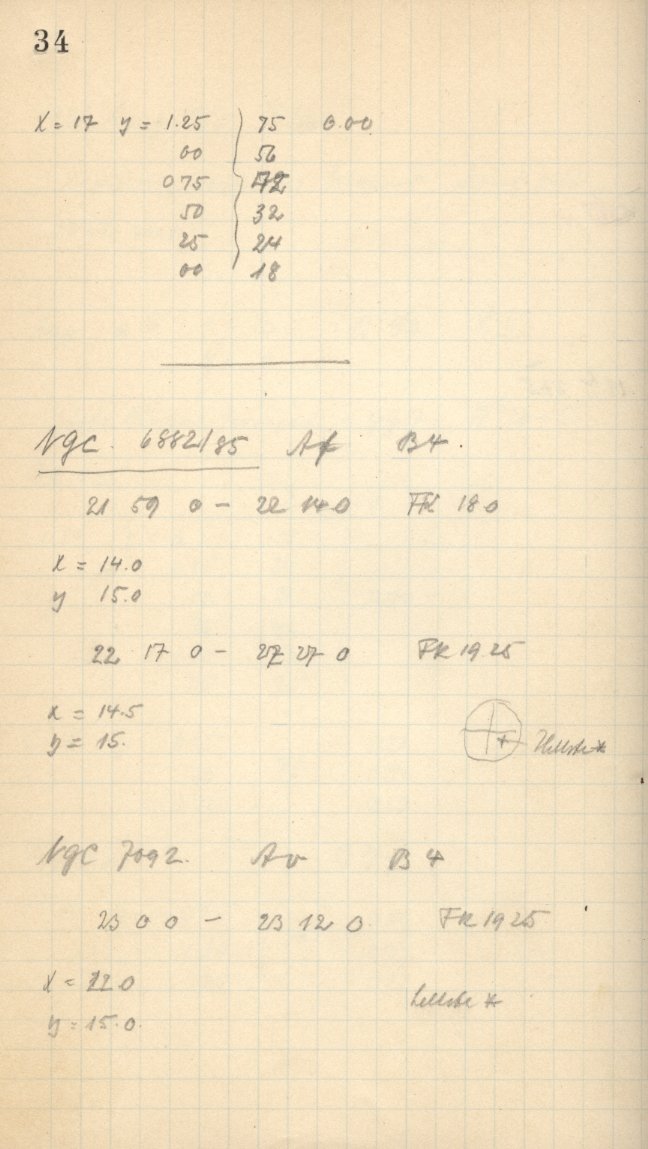 34
X = 17 y = 1.25 75 0.00
00 56
075 42
50 32
25 24
00 18
NGC 6882/85 B4.
21 59 0 - 22 14 0 FK 18 0
x = 14.0
y 15.0
22 17 0 - 22 27 0 FK 19 25
x = 14.5
y = 15.
NGC 7092. Av B 4
23 0 0 - 23 12 0 FK 19 25
x = 12.0
y = 15.0.